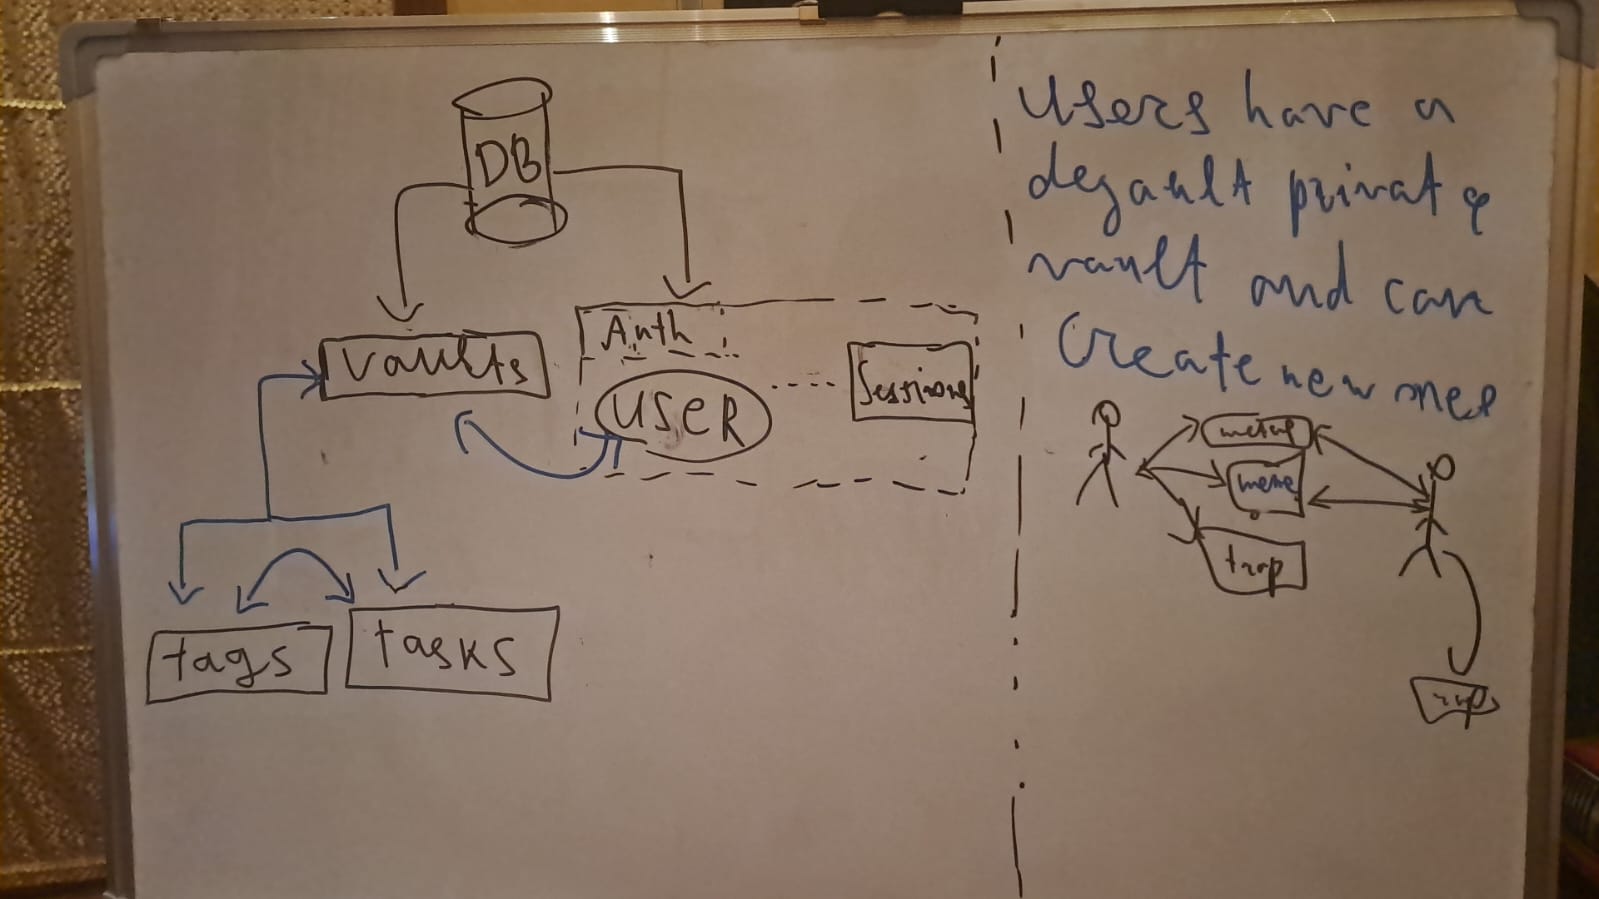 DB
vaults
Auth
USER
Sessions
tags
tasks
Users have a
default private
vault and can
Create new ones
meme
trap